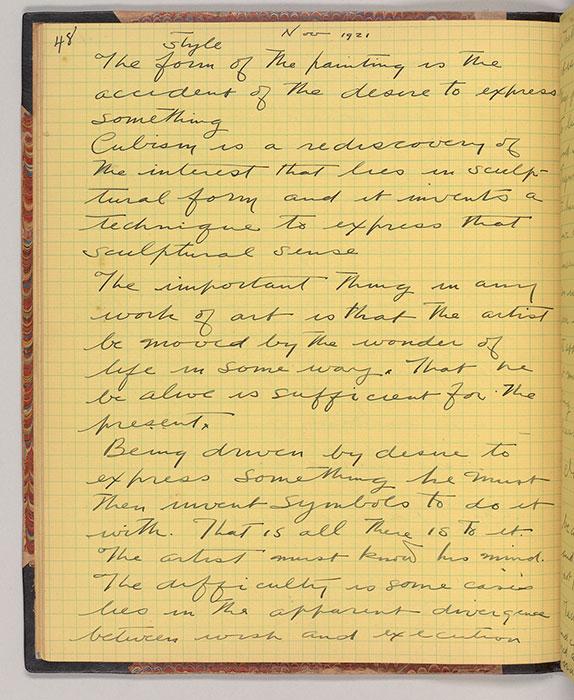 48
Nov 1921
Style
The form of the painting is the
accident of the desire to express
something
Cubism is a rediscovery of
the interest that lies in sculp-
tural form and it invents a
technique to express that
sculptural sense
The important thing in any
work of art is that the artist
be moved by the wonder of
life in some way. That he
be alive is sufficient for the
present.
Being driven by desire to
express something he must
then invent symbols to do it
with. That is all there is to it.
The artist must know his mind.
The difficulty is some cases
lies in the apparent divergence
between wish and execution